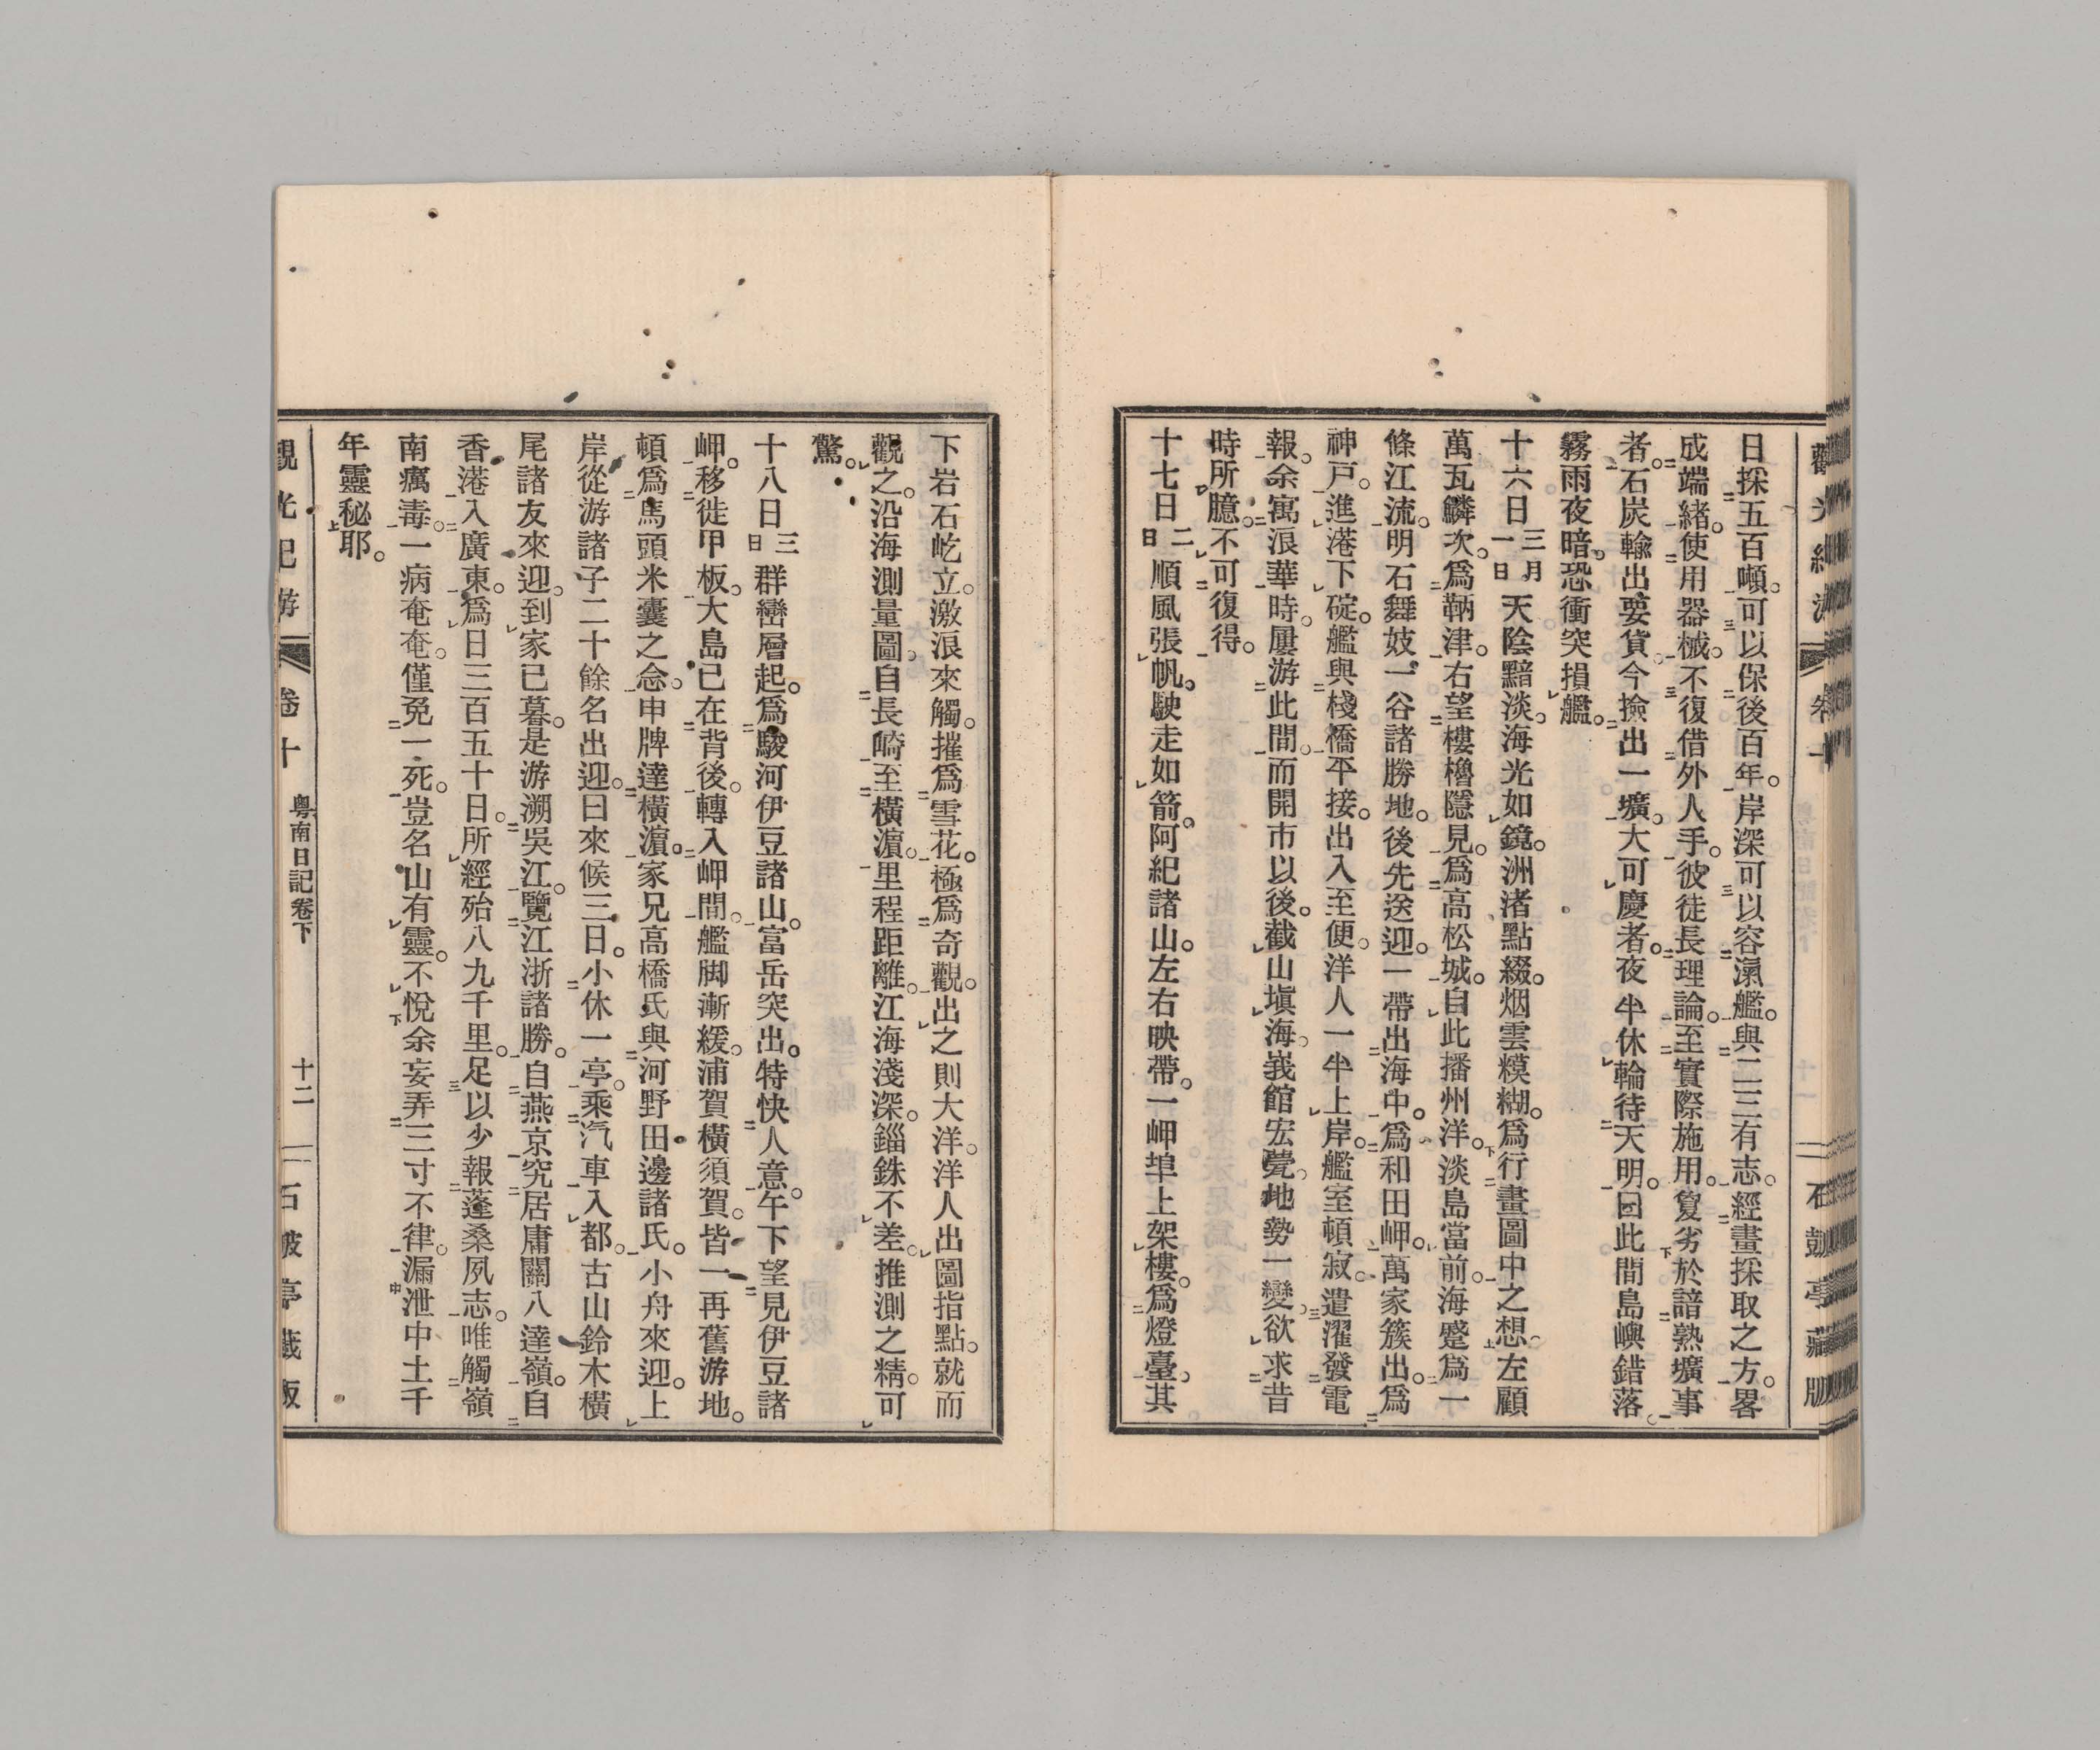 日採五百噸。可以保後百年。岸深可以容滊艦。與二三有志。經畫採取之方。畧
成端緒。使用器械。不復借外人手。彼徒長理論。至實際施用。敻劣於諳熟壙事
者。石炭輸出要貨。今撿出一壙。大可慶者。夜半休輪待天明。因此間島嶼錯落。
霧雨夜暗。恐衝突損艦。
十六日三月一日天陰黯淡。海光如鏡。洲渚點綴。烟雲糢糊。爲行畫圖中之想。左顧
萬瓦鱗次。爲鞆津。右望樓櫓隱見。爲高松城。自此播州洋。淡島當前。海蹙爲一
條江流。明石舞妓一谷諸勝地。後先送迎。一帶出海中。爲和田岬。萬家簇出。爲
神戸。進港下碇。艦與棧橋平接。出入至便。洋人一半上岸。艦室頓寂。遣濯發電
報。余寓浪華時。屢游此間。而開市以後。截山塡海。峩館宏甍。地勢一變。欲求昔
時所臆。不可復得。
十七日二日順風張帆。駛走如箭。阿紀諸山。左右映帶。一岬埠上架樓。爲燈臺。其
下岩石屹立。激浪來觸。摧爲雪花。極爲奇觀。出之則大洋。洋人出圖指點。就而
觀之。沿海測量圖。自長崎至橫濵。里程距離。江海淺深。錙銖不差。推測之精。可
驚。
十八日三日群巒層起。爲駿河伊豆諸山。富岳突出。特快人意。午下望見伊豆諸
岬。移徙甲板。大島已在背後。轉入岬間。艦脚漸緩。浦賀橫須賀。皆一再舊游地。
頓爲馬頭米囊之念。申牌達橫濵。家兄高橋氏與河野田邊諸氏。小舟來迎。上
岸從游諸子二十餘名出迎。曰來候三日。小休一亭。乘汽車入都。古山鈴木橫
尾諸友來迎。到家已暮。是游溯吳江。覽江浙諸勝。自燕京究居庸關八達嶺。自
香港入廣東。爲日三百五十日。所經殆八九千里。足以少報蓬桑夙志。唯觸嶺
南癘毒。一病奄奄。僅免一死。豈名山有靈。不悅余妄弄三寸不律。漏泄中土千
年靈秘耶。
觀光紀游 卷十 粤南日記卷下 十二 石皷亭藏版